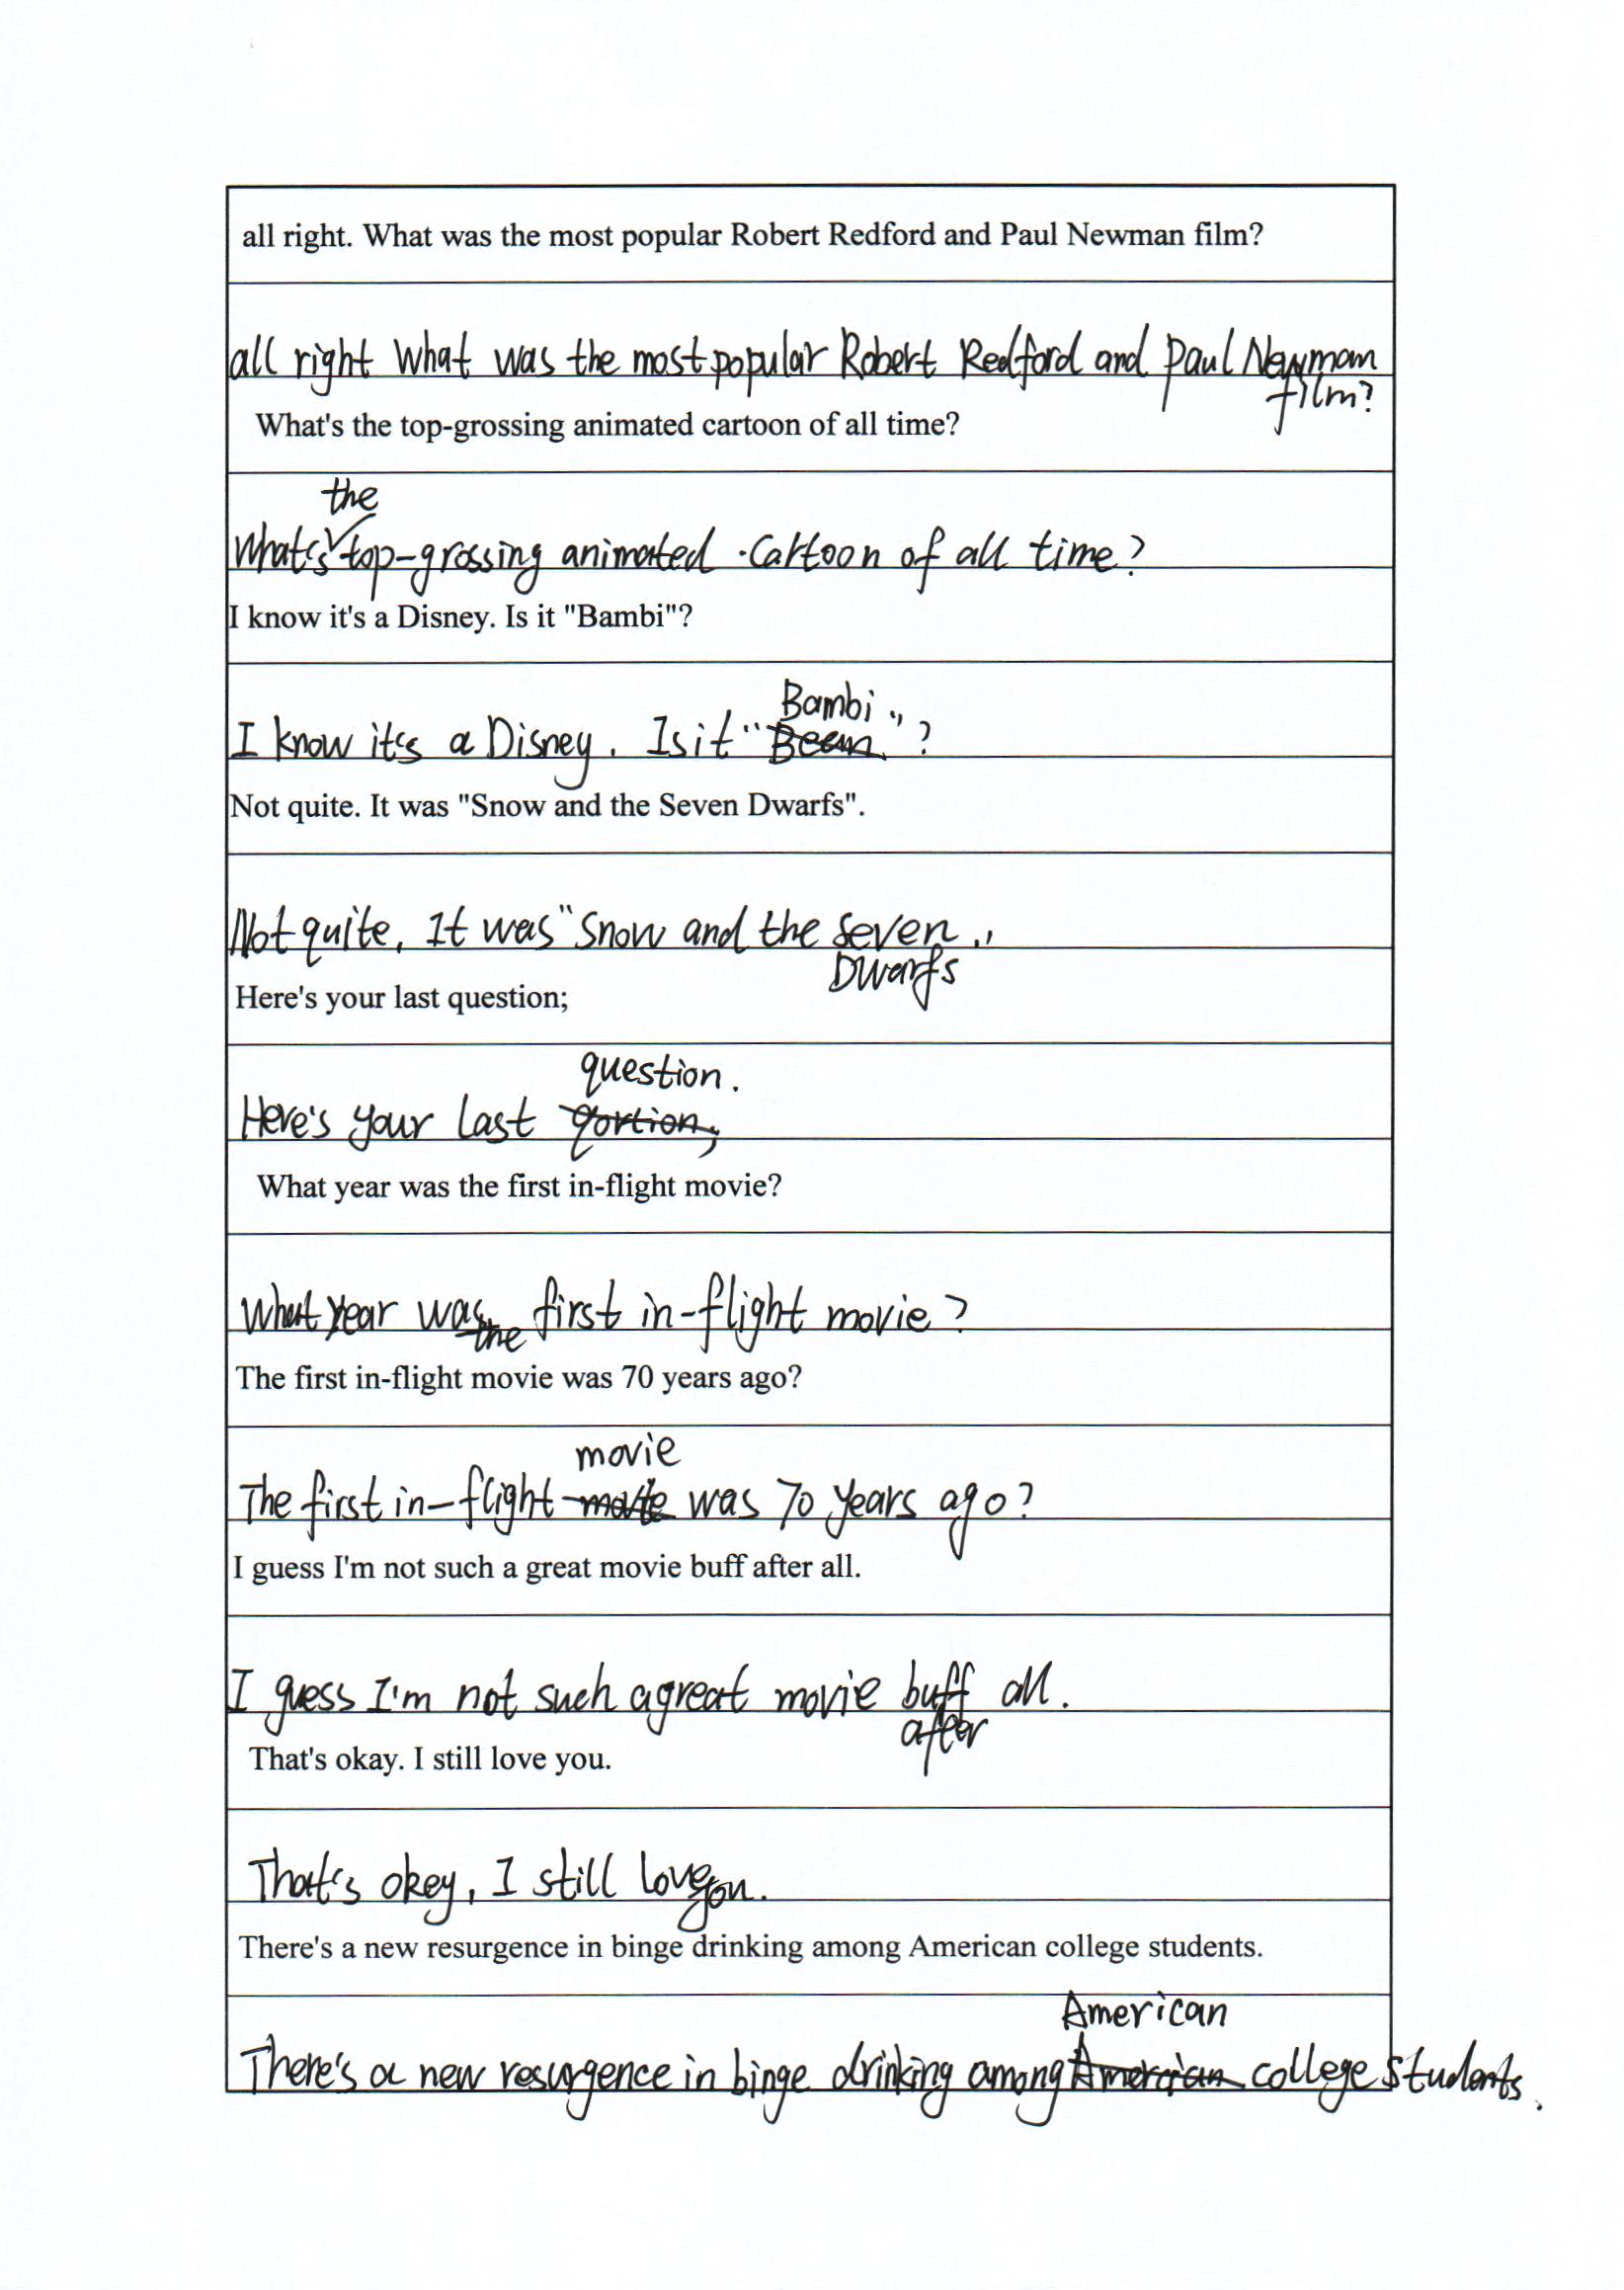 all right. What was the most popular Robert Redford and Paul Newman film?
all right What was the most popular Robert Redford and Paul Newmam
film?
What's the top-grossing animated cartoon of all time?
the
What's top-grossing animated cartoon of all time?
I know it's a Disney. Is it "Bambi"?
Bambi
I know it's a Disney. Is it "Beem"?
Not quite. It was "Snow and the Seven Dwarfs".
Not quite. It was "Snow and the Seven"
Dwarfs
Here's your last question;
question.
Here's your last qortion;
What year was the first in-flight movie?
What year was the first in-flight movie?
The first in-flight movie was 70 years ago?
movie
The first in-flight was 70 years ago?
I guess I'm not such a great movie buff after all.
I guess I'm not such a great movie buff all.
after
That's okay. I still love you.
That's okey, I still love you.
There's a new resurgence in binge drinking among American college students.
American
There's a new resurgence in binge drinking among college students.